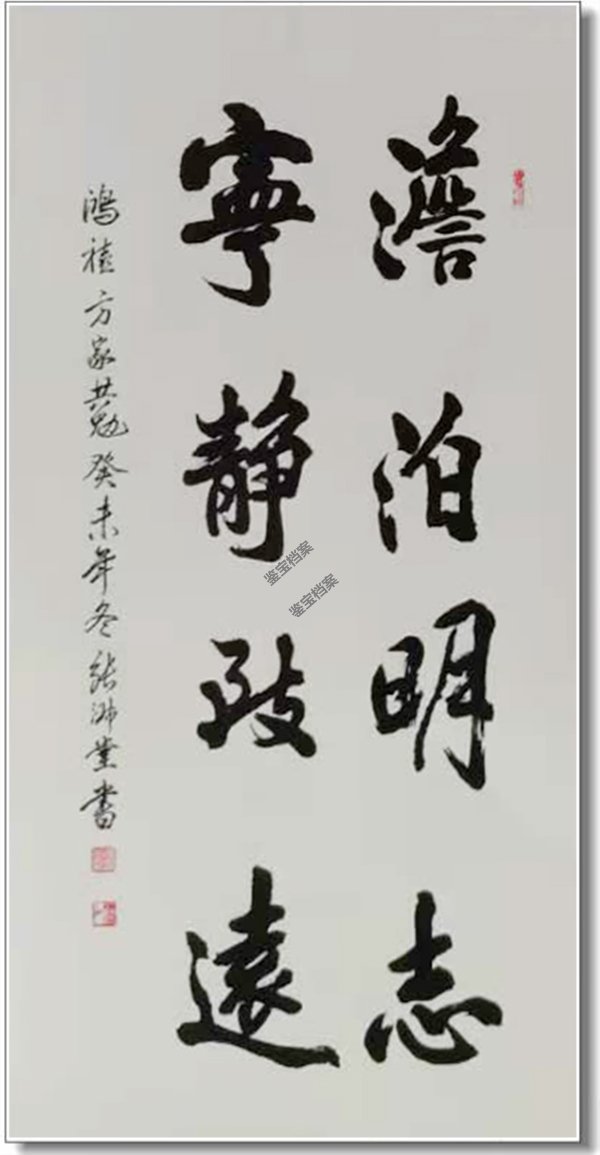 澹泊明志
寧靜致遠
鴻禧方家共勉癸未年冬張沛業書
鉴宝档案
鉴宝档案